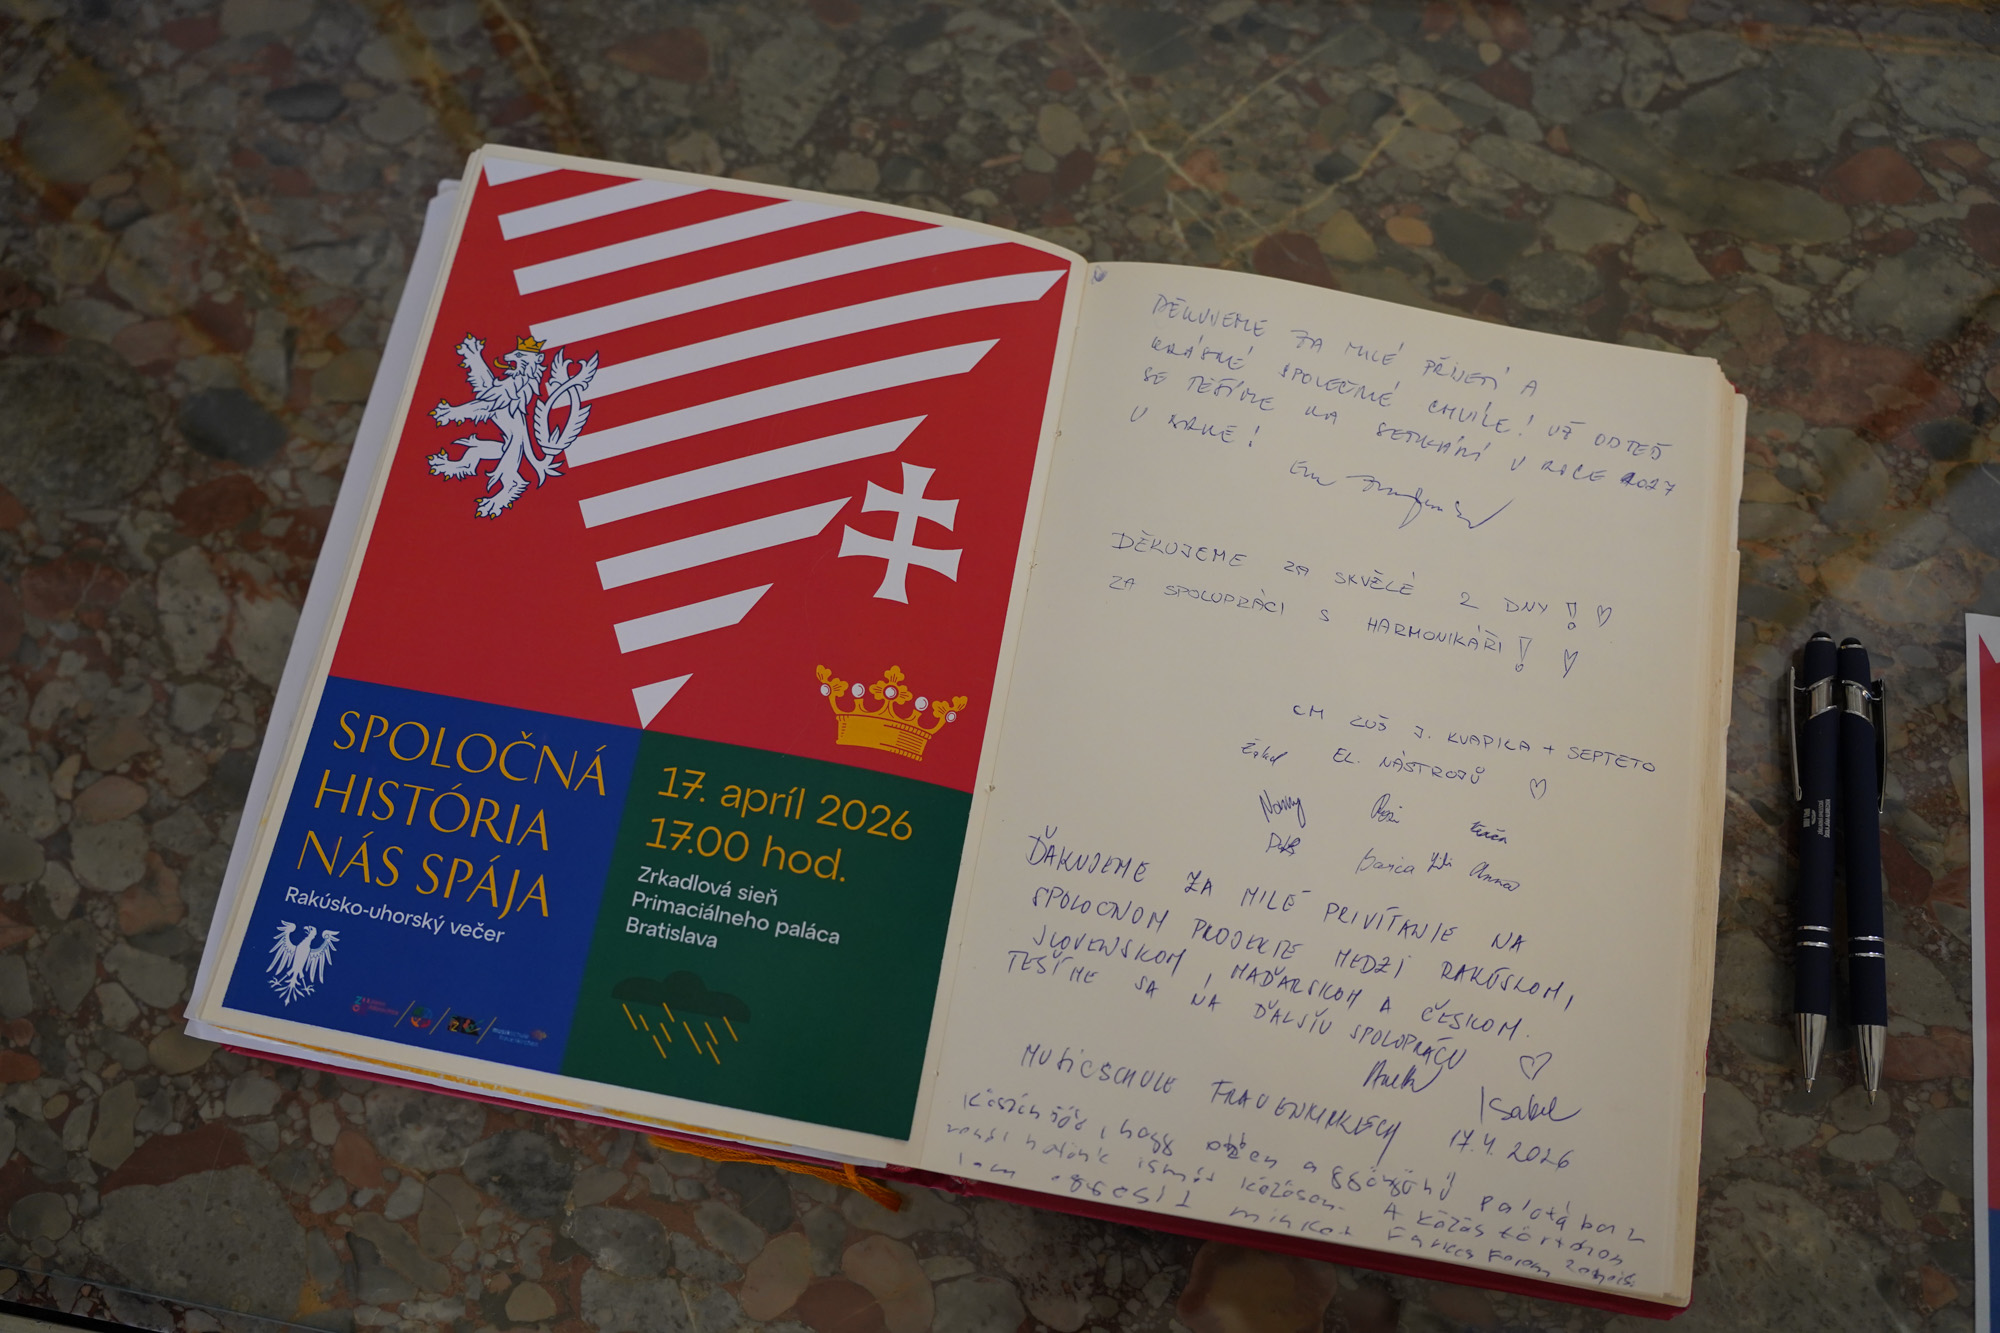 SPOLOČNÁ
HISTÓRIA
NÁS SPÁJA
Rakúsko-uhorský večer
17. apríl 2026
17.00 hod.
Zrkadlová sieň
Primaciálneho paláca
Bratislava
DĚKUJEME ZA MILÉ PŘIJETÍ A
KRÁSNÉ SPOLEČNÉ CHVÍLE! UŽ ODTEĎ
SE TĚŠÍME NA SETKÁNÍ V ROCE 2027
V BRNĚ!
DĚKUJEME ZA SKVĚLÉ 2 DNY! ♡
ZA SPOLUPRÁCI S HARMONIKÁŘI! ♡
CM ZUŠ J. KVAPILA + SEPTETO
EL. NÁSTROJŮ ♡
Anna
ĎAKUJEME ZA MILÉ PRIVÍTANIE NA
SPOLOČNOM PROJEKTE MEDZI RAKÚSKOM,
SLOVENSKOM, MAĎARSKOM A ČESKOM.
TEŠÍME SA NA ĎALŠIU SPOLUPRÁCU ♡
MUSICSCHULE FRAUENKIRCHEN Isabel
17.4.2026
hogy ebben a gyönyörű palotában
ismét közösen A közös történelem
minket Farkas Ferenc